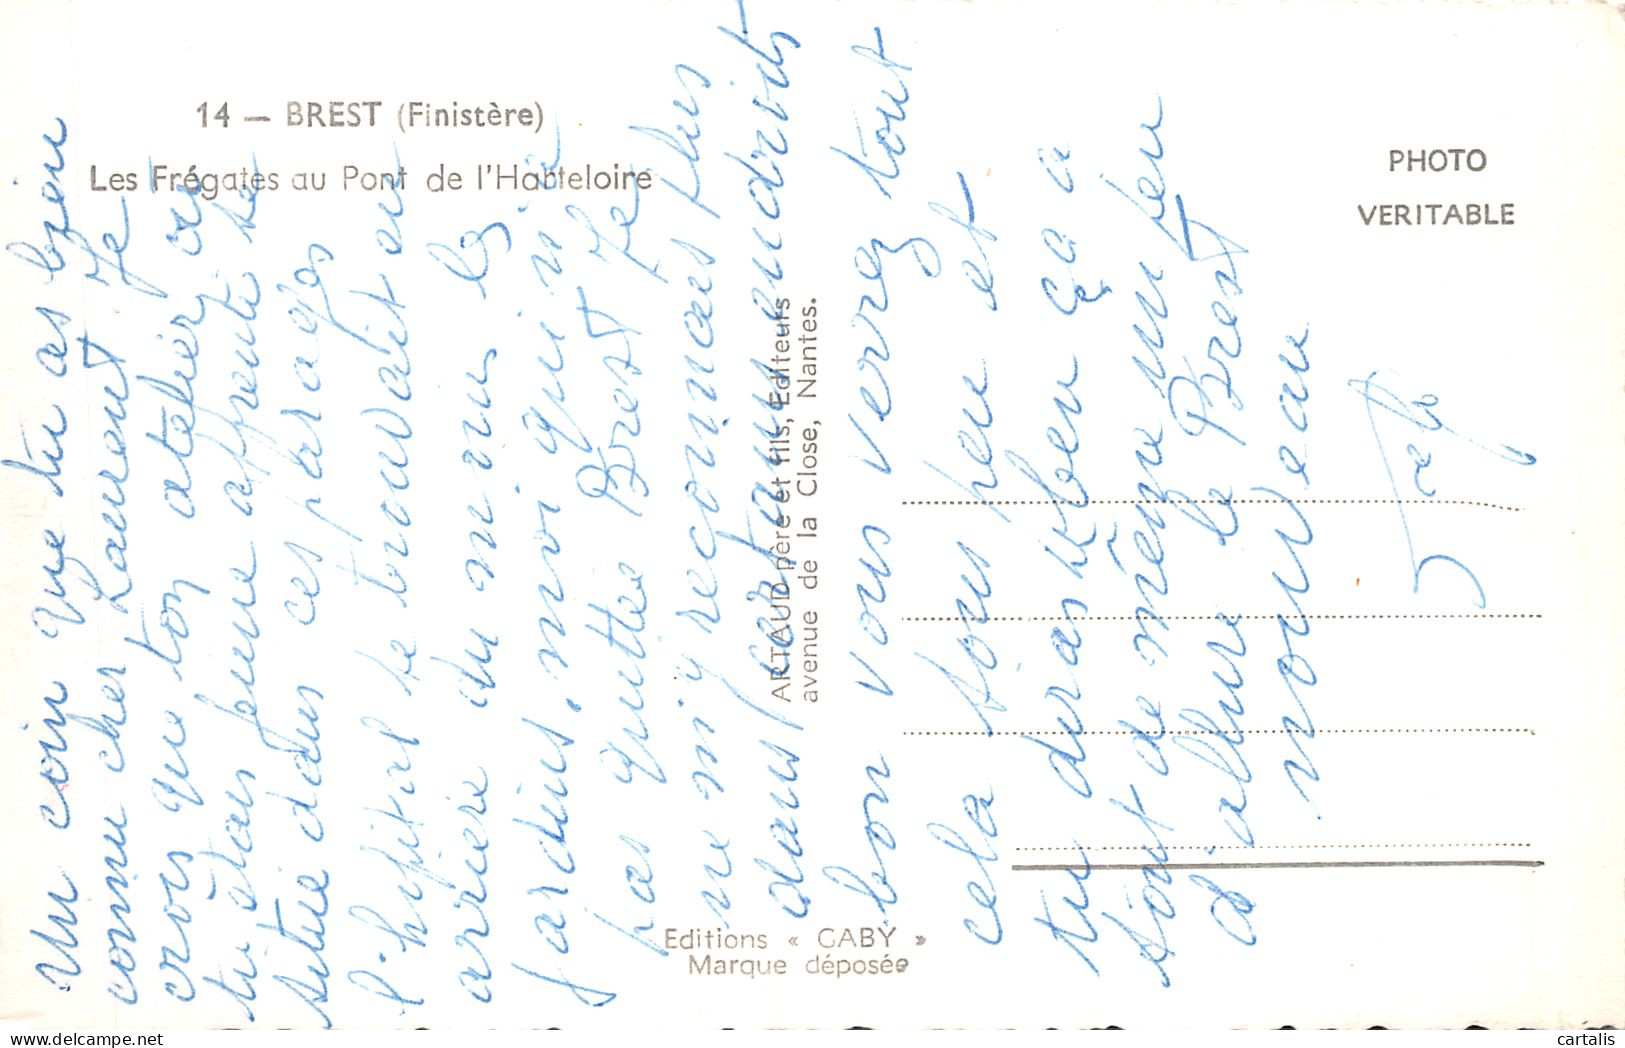 14 — BREST (Finistère)
Les Frégates au Pont de l'Harteloire
PHOTO
VERITABLE
ARTAUD père et fils, Editeurs
avenue de la Close, Nantes.
Editions « GABY »
Marque déposée
Un coin que tu as bien
connu cher Laurent Je
crois que ton atelier ou
tu étais jeune apprenti se
situé dans ces parages
l'hopital se trouvait en
arrière du mur les
jardins. moi qui n'a
pas quitté Brest Je
ne m'y reconnais plus
dans certains endroits
bon vous verrez tout
cela sous peu et
tu diras ben ça a
tout de même un peu
d'allure le Brest
nouveau
cartalis